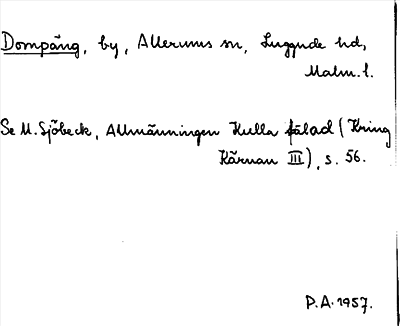 Dompäng, by, Allerums sn, Luggude hd,
Malm. l.
Se M. Sjöbeck, Allmänningen Kulla fälad (Kring
Kärnan III), s. 56.
P.A. 1957.